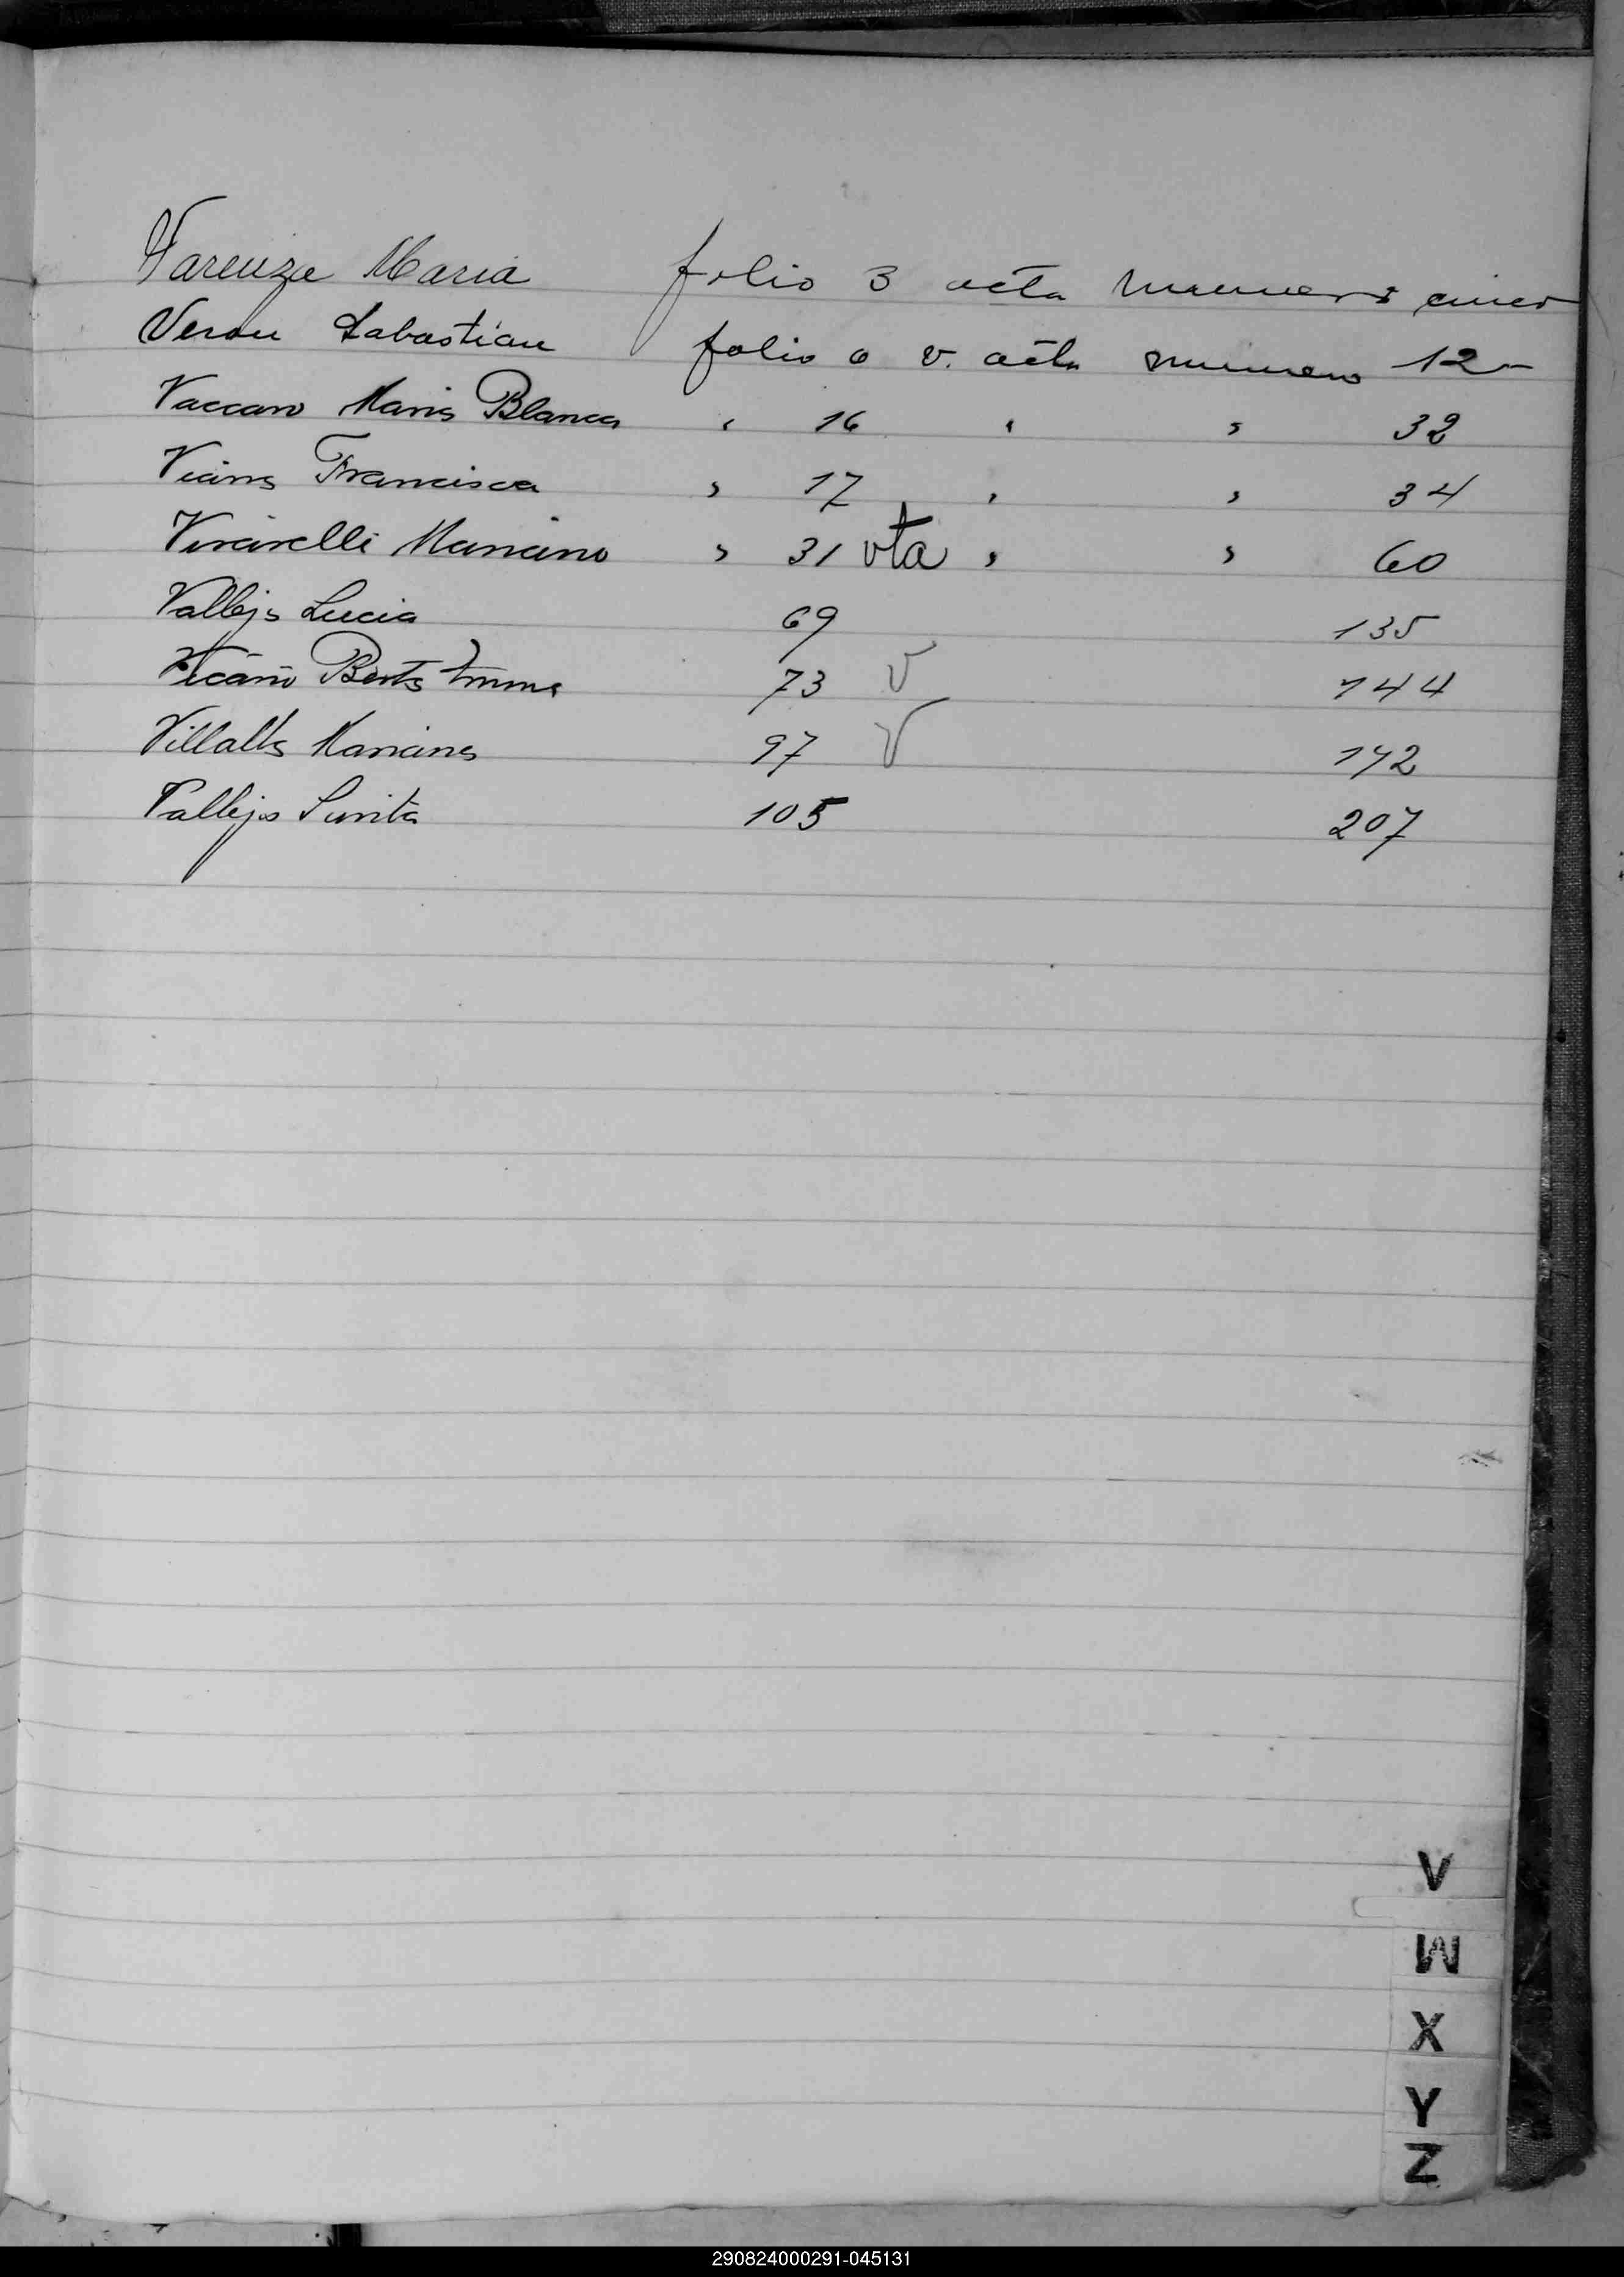 Varenza Maria folio 3 acta numero cinco
Veron Sabastian folio 6 v. acta numero 12-
Vaccaro Maria Blanca " 16 " " 32
Francisca " 17 " " 34
Mariano " 31 vta " " 60
Vallejo Lucia 69 135
Berta Emma 73 v 144
Villalba Mariana 97 v 192
Vallejo 105 207
V
W
X
Y
Z
290824000291-045131